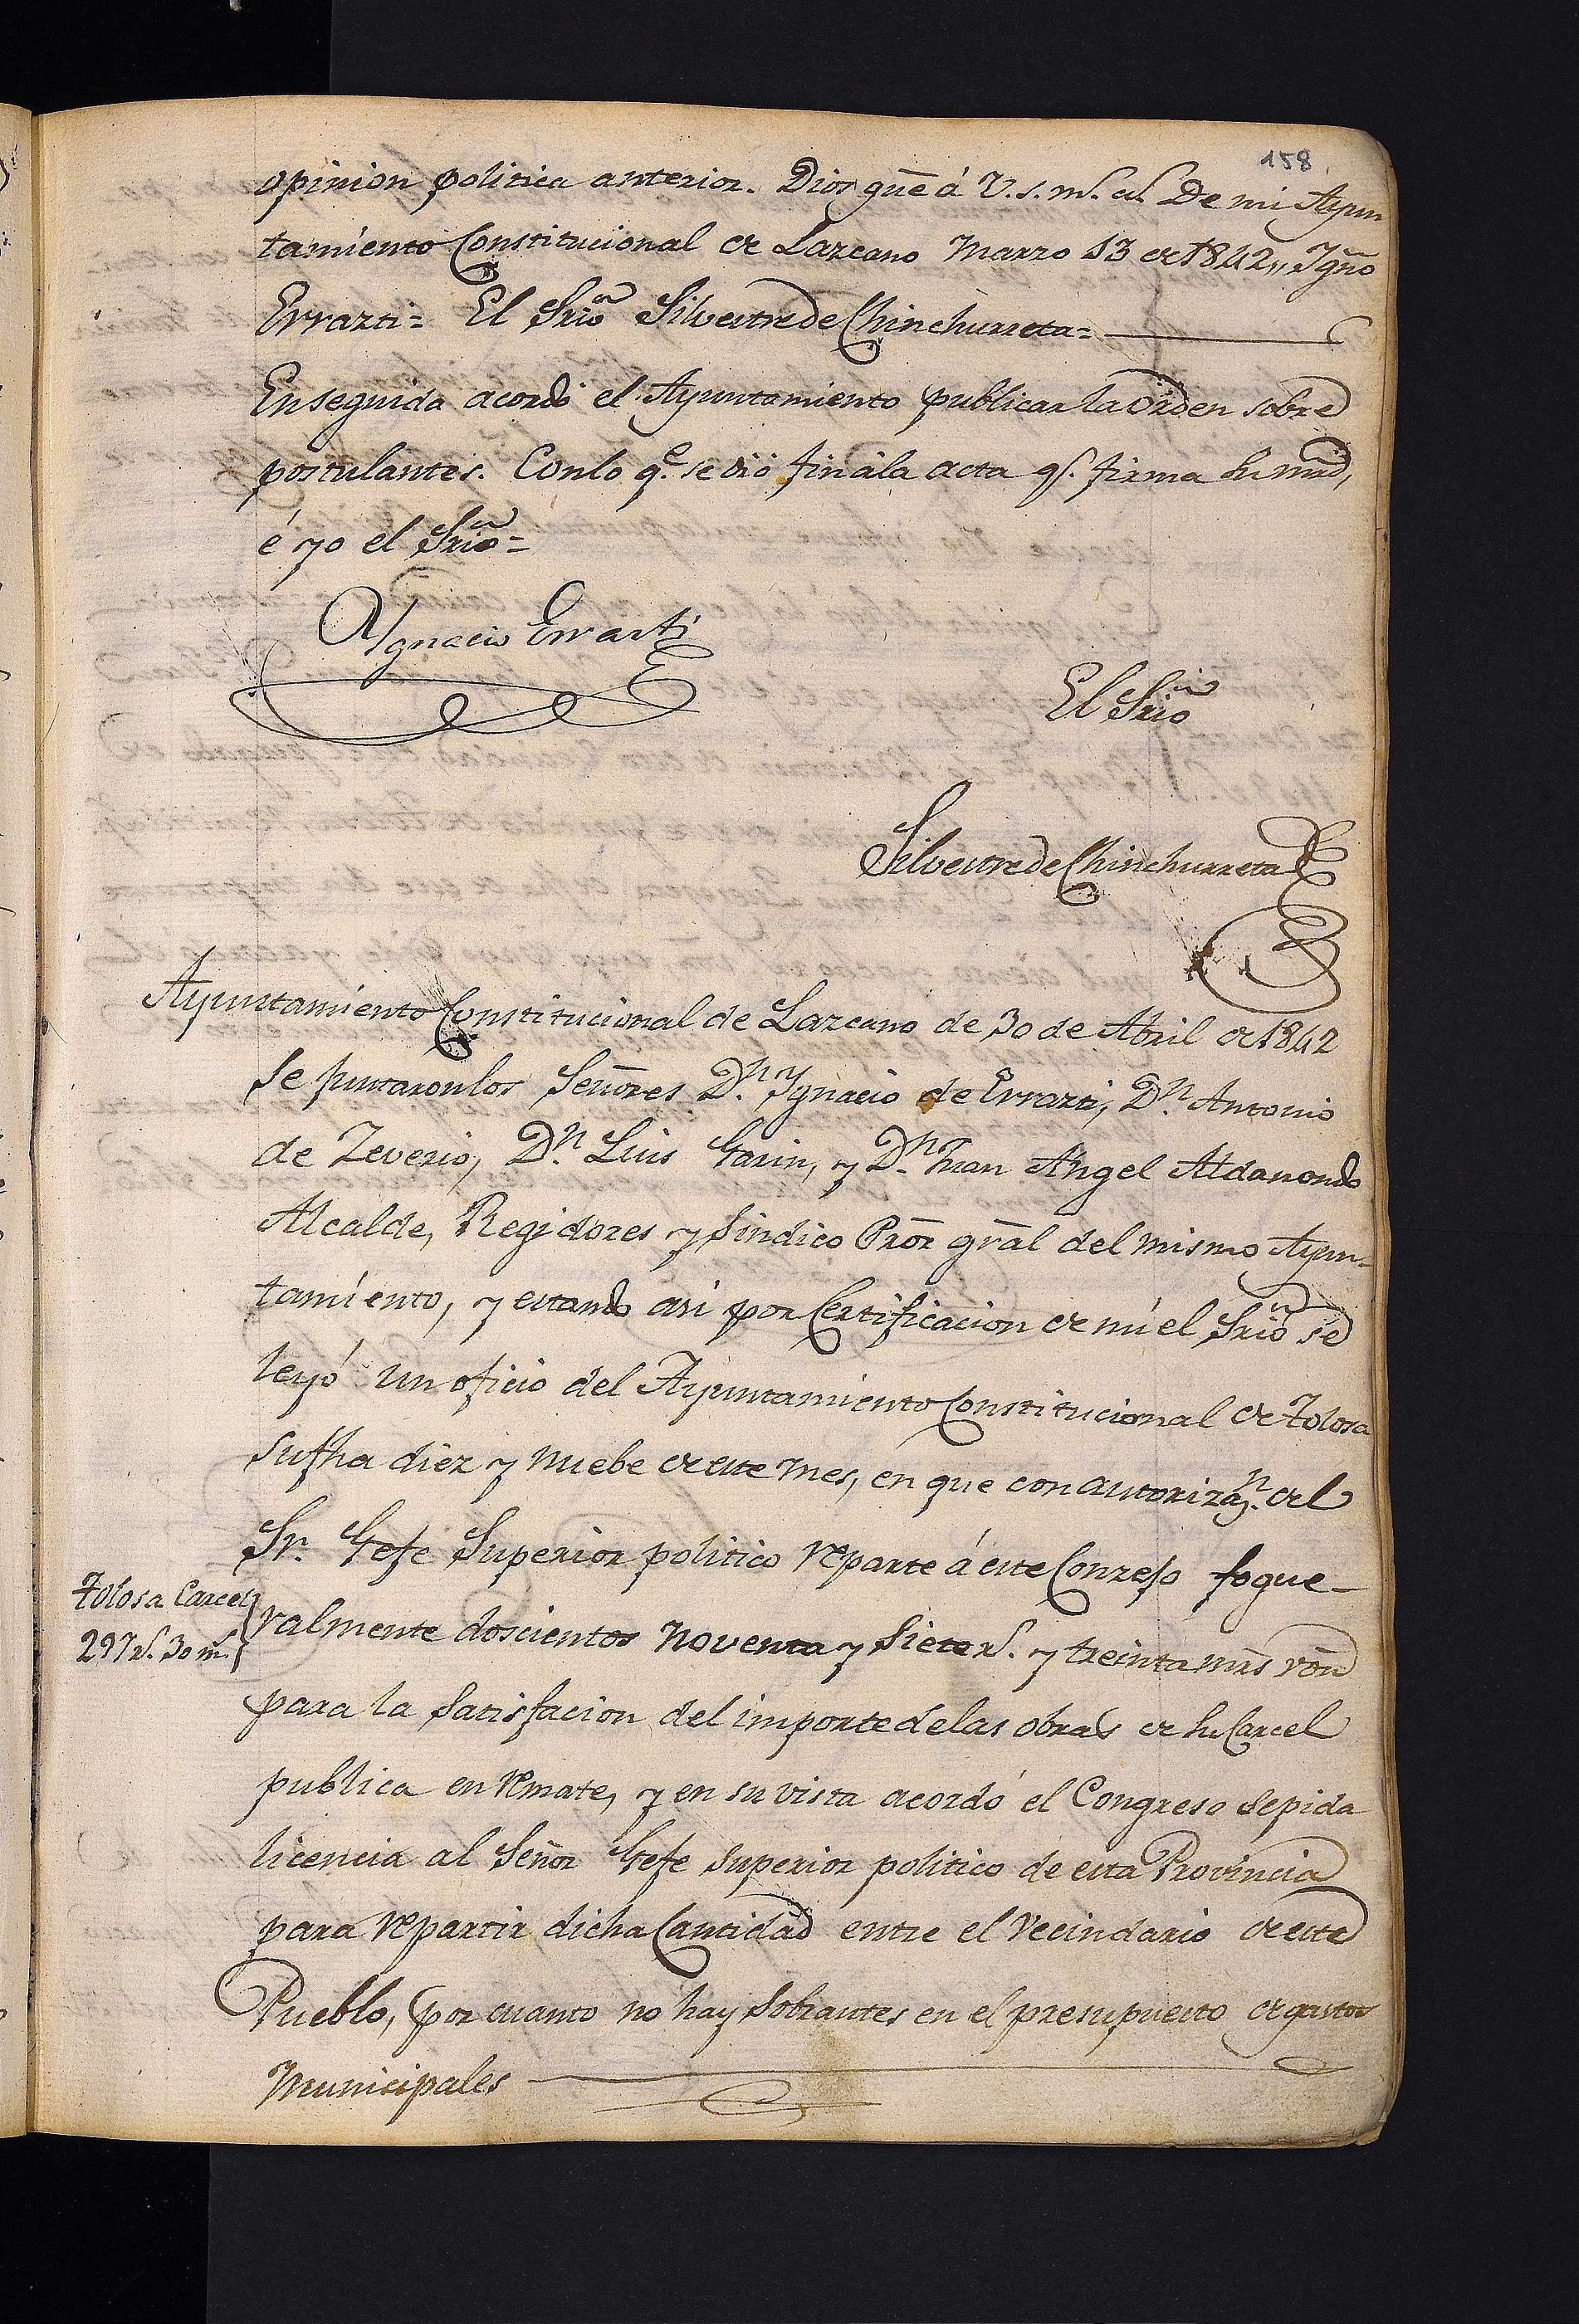 158
opinion politica anterior. Dios gũe á V. s. m.s as. De mi Ayun
tamiento Constitucional de Lazcano Marzo 13 de 1842,, Ygño
Errazti= El Srio Silvestre de Chinchurreta=
Enseguida acordó el Ayuntamiento publicar la orden sobre
postulantes. Conlo q.e se dió fin ála acta qs. firma su mrd,
é yo el Srio=
Ygnacio Errasti
El Srio
Silvestre de Chinchurreta
Ayuntamiento Constitucional de Lazcano de 30 de Abril de 1842
Se juntaronlos Señores D.n Ygnacio de Errazti, D.n Antonio
de Zeverio, D.n Luis Garin, y D.n Juan Angel Aldanondo
Alcalde, Regidores y Sindico Prõr grãl del mismo Ayun-
tamiento, y estando asi por Certificacion de mi el Srio se
leyó un oficio del Ayuntamiento Constitucional de Tolosa
sufha diez y nuebe de este mes, en que con autorizaz.n del
Sr. Gefe Superior politico reparte á este Conzejo fogue-
Tolosa Carcel
297 r.s 30 m.s
ralmente doscientos noventa y siete r.s y treinta mrs vón
para la satisfacion del importe delas obras de su Carcel
publica en remate, y en su vista acordó el Congreso sepida
licencia al Señor Gefe superior politico de esta Provincia
para repartir dicha Cantidad entre el Vecindario de este
Pueblo, por cuanto no hay sobrantes en el presupuesto de gastos
Municipales